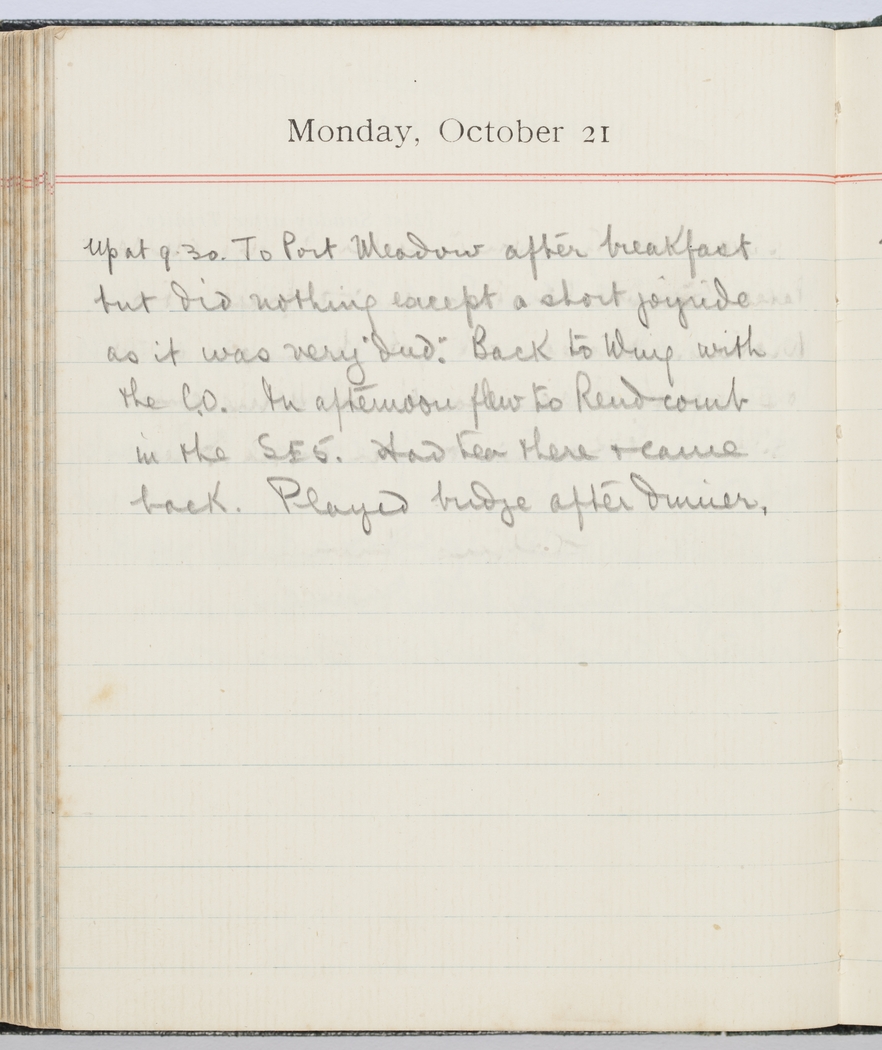 Monday, October 21
Up at 9.30. To Port Meadow after breakfast
but did nothing except a short joyride
as it was very "dud". Back to Wing with
the C.O. In afternoon flew to Rendcomb
in the SE5. Had tea there + came
back. Played bridge after dinner.